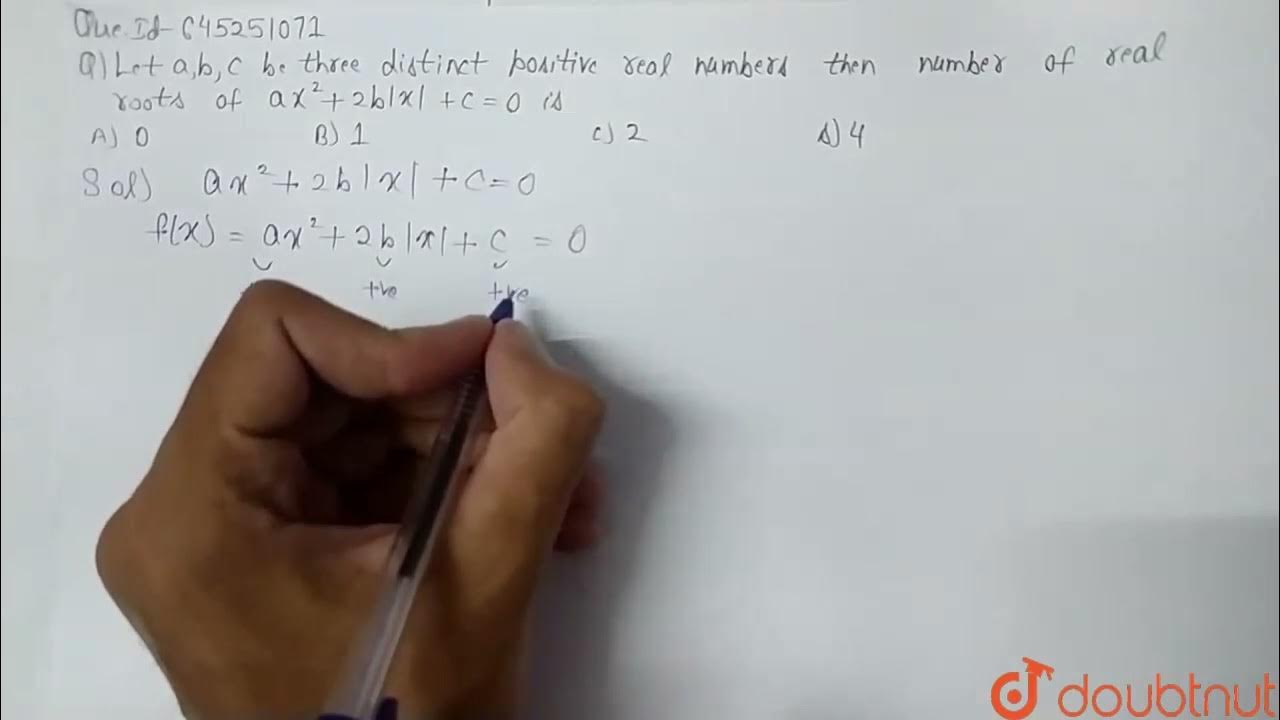 Que. Id- 645251071
Q) Let a,b,c be three distinct positive real numbers then number of real
roots of ax²+2b|x|+c=0 is
A) 0 B) 1 C) 2 D) 4
Sol) ax²+2b|x|+c=0
f(x) = ax²+2b|x|+c = 0
+ve +ve
doubtnut